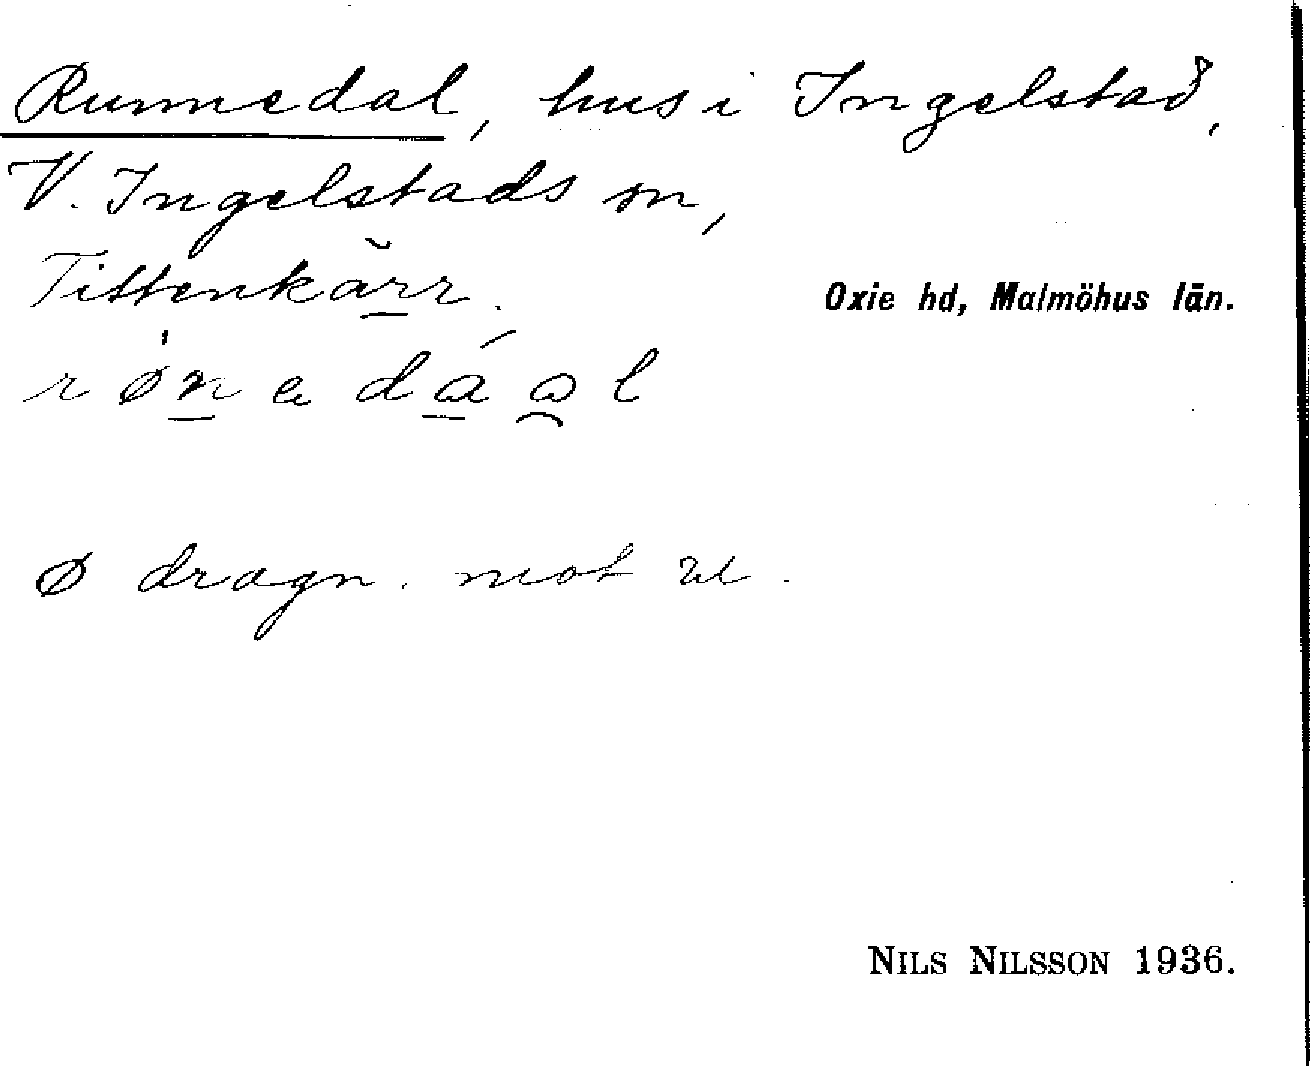 Runnedal, hus i Ingelstad,
V. Ingelstads sn,
Tittenkärr.
Oxie hd, Malmöhus län.
r ø n e d a a l
ø dragn. mot u.
NILS NILSSON 1936.